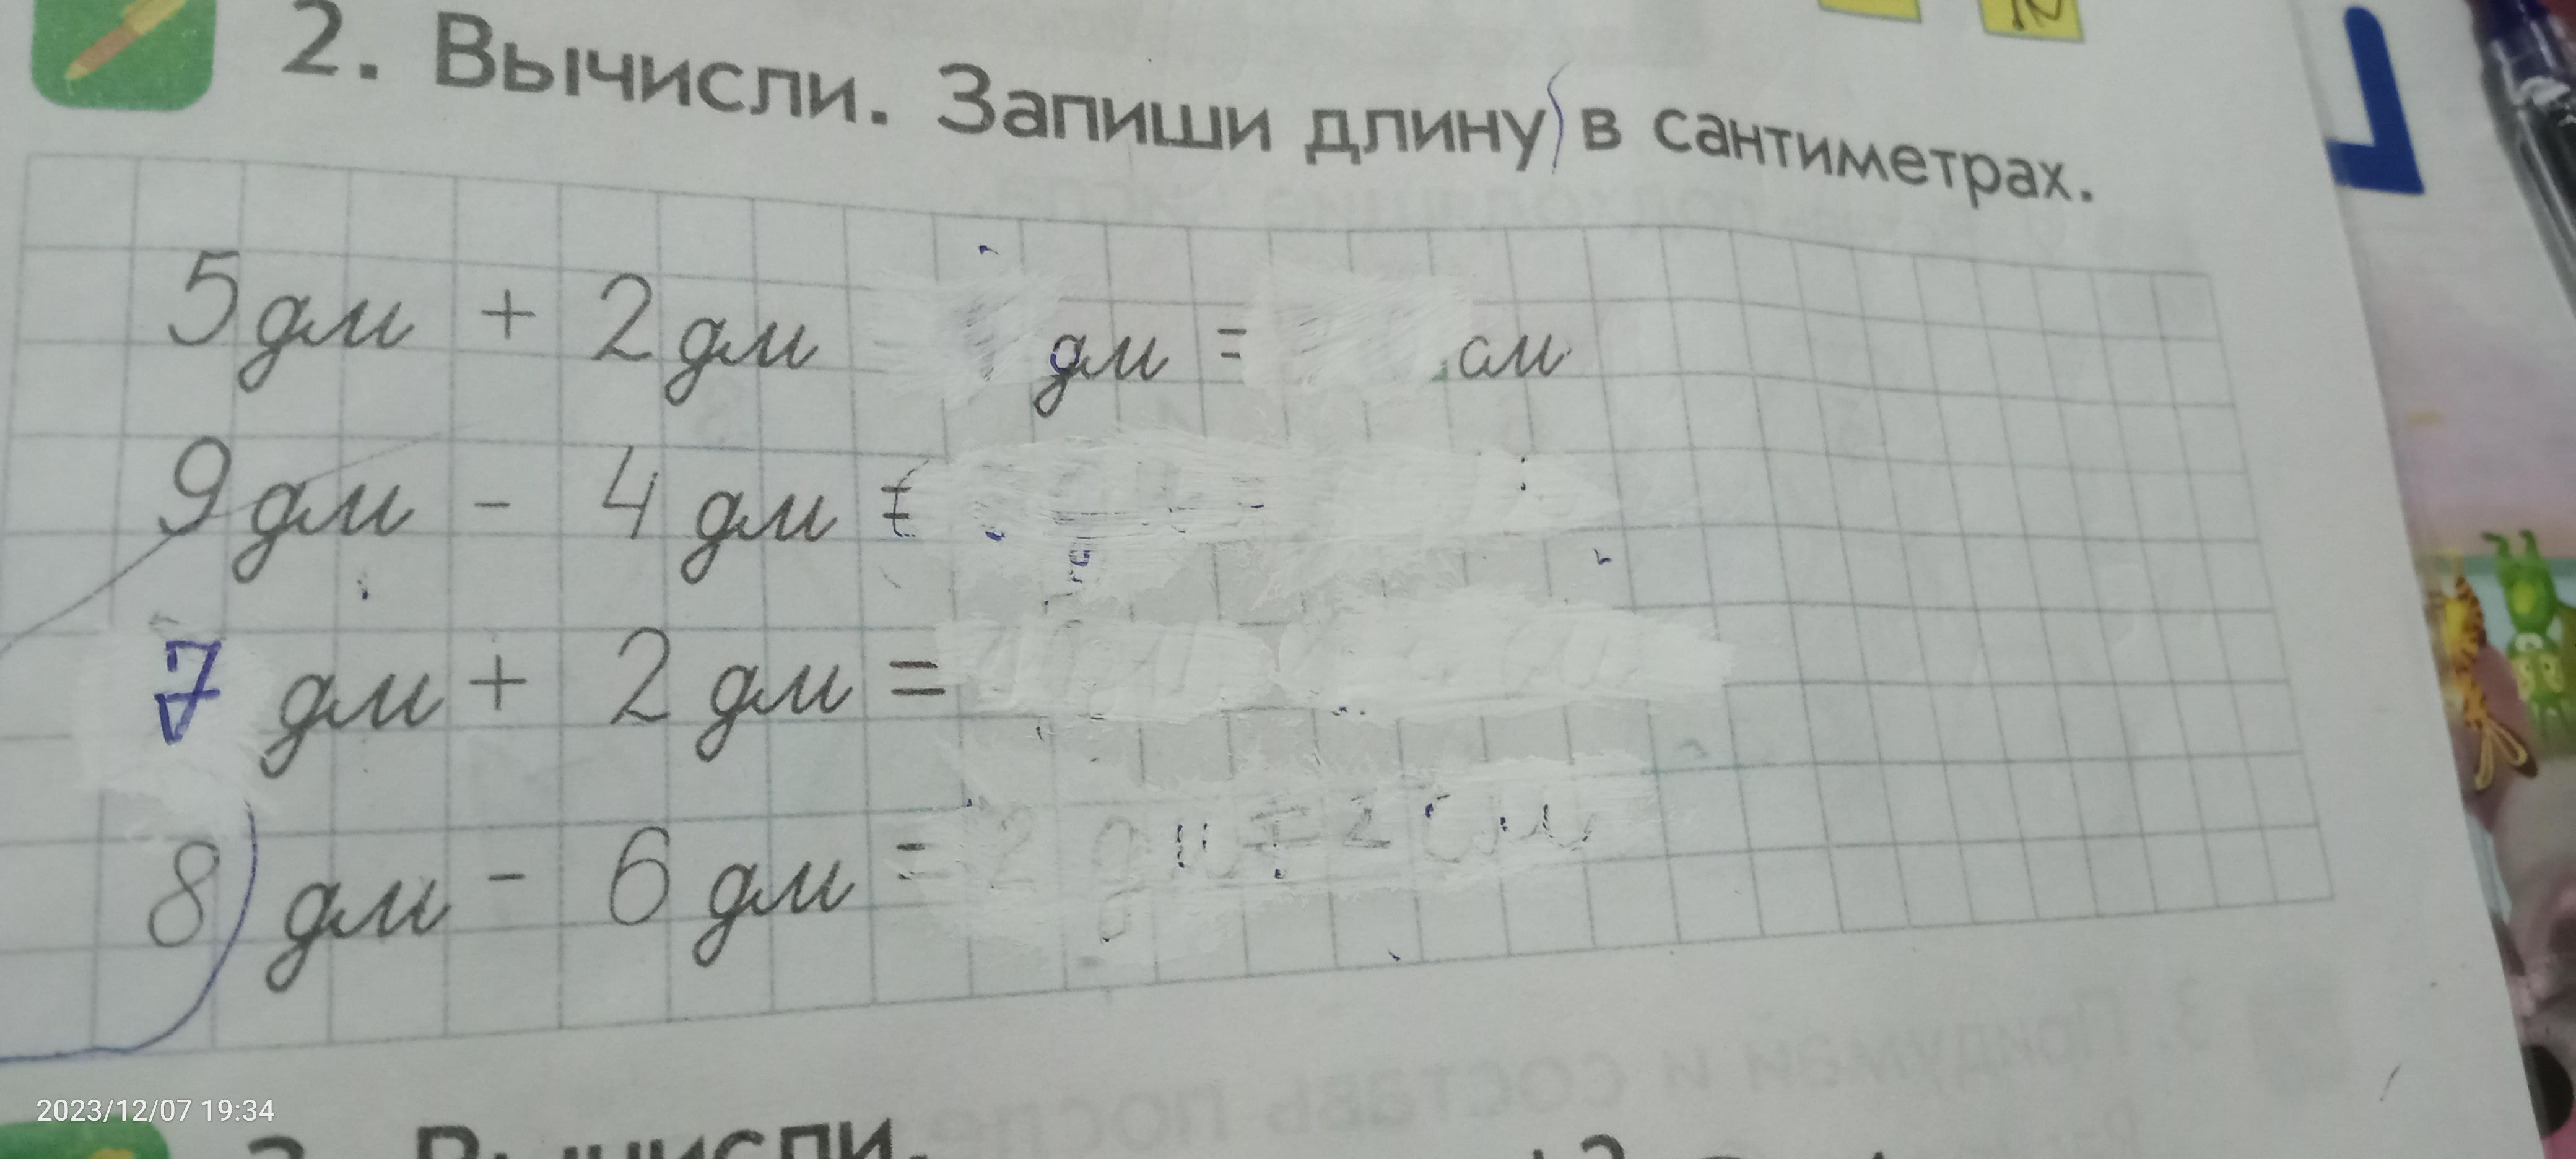 2. Вычисли. Запиши длину в сантиметрах.
5 дм + 2 дм дм = см
9 дм - 4 дм =
7 дм + 2 дм =
8 дм - 6 дм = 2 дм = 2 см
2023/12/07 19:34
Вычисли.